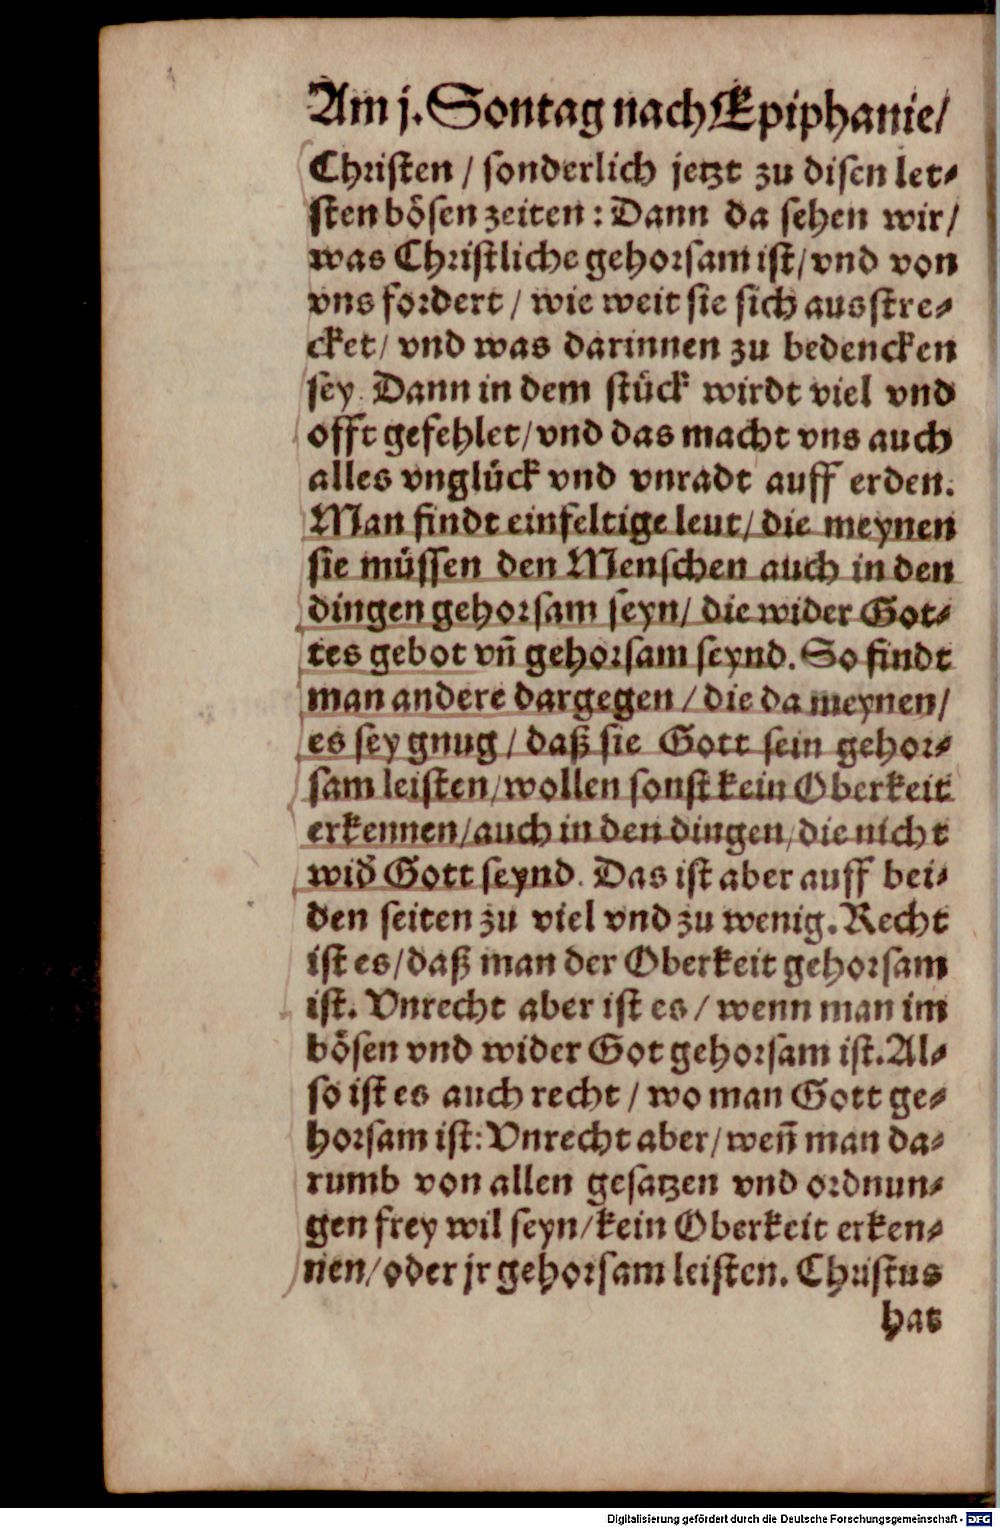 Am j. Sontag nach Epiphanie/
Christen / sonderlich jetzt zu disen let⸗
sten bösen zeiten : Dann da sehen wir/
was Christliche gehorsam ist/ vnd von
vns fordert / wie weit sie sich ausstre⸗
cket/ vnd was darinnen zu bedencken
sey. Dann in dem stück wirdt viel vnd
offt gefehlet/ vnd das macht vns auch
alles vnglück vnd vnradt auff erden.
Man findt einfeltige leut/ die meynen
sie müssen den Menschen auch in den
dingen gehorsam seyn/ die wider Got⸗
tes gebot vñ gehorsam seynd. So findt
man andere dargegen / die da meynen/
es sey gnug / daß sie Gott sein gehor⸗
sam leisten/ wollen sonst kein Oberkeit
erkennen/ auch in den dingen/ die nicht
wid̕ Gott seynd. Das ist aber auff bei⸗
den seiten zu viel vnd zu wenig. Recht
ist es/ daß man der Oberkeit gehorsam
ist. Vnrecht aber ist es / wenn man im
bösen vnd wider Got gehorsam ist. Al⸗
so ist es auch recht / wo man Gott ge⸗
horsam ist: Vnrecht aber/ weñ man da⸗
rumb von allen gesatzen vnd ordnun⸗
gen frey wil seyn/ kein Oberkeit erken⸗
nen/ oder jr gehorsam leisten. Christus
hat
Digitalisierung gefördert durch die Deutsche Forschungsgemeinschaft - DFG